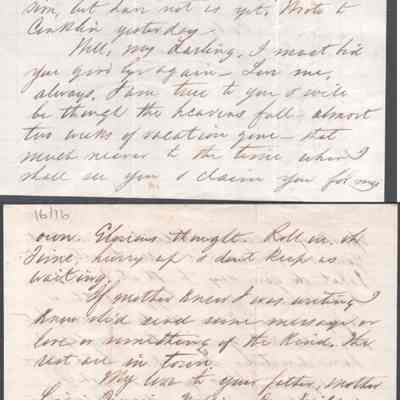 son, but have not as yet. Wrote to
Conklin yesterday.
Well, my darling, I must bid
you good bye again - Love me,
always. I am true to you & will
be though the heavens fall - almost
two weeks of vacation gone - that
much nearer to the time when I
shall see you & claim you for my
16/16
own. Glorious thought. Roll on, oh
Time, hurry up & don't keep us
waiting.
If mother knew I was writing I
know she'd send some message or
love or something of the kind. The
rest are in town.
My love to your father, mother